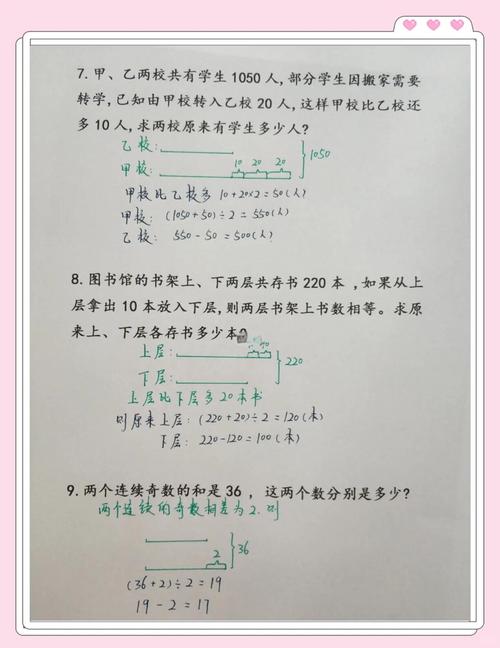 7. 甲、乙两校共有学生1050人,部分学生因搬家需要
转学,已知由甲校转入乙校20人,这样甲校比乙校还
多10人,求两校原来有学生多少人?
乙校:
10 20 20
甲校:
1050
甲校比乙校多10+20×2=50(人)
甲校: (1050+50)÷2=550(人)
乙校: 550-50=500(人)
8. 图书馆的书架上、下两层共存书220本,如果从上
层拿出10本放入下层,则两层书架上书数相等。求原
来上、下层各存书多少本?
上层:
220
下层:
上层比下层多20本书
则原来上层: (220+20)÷2=120(本)
下层: 220-120=100(本)
9. 两个连续奇数的和是36,这两个数分别是多少?
两个连续的奇数相差为2.则
2
36
(36+2)÷2=19
19-2=17